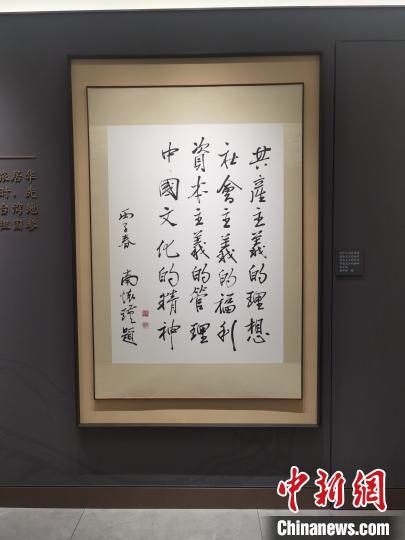 共產主義的理想
社會主義的福利
資本主義的管理
中國文化的精神
丙子春
南懷瑾題
旅居华
时，先
台湾地
祖国参
中新网
Chinanews.com